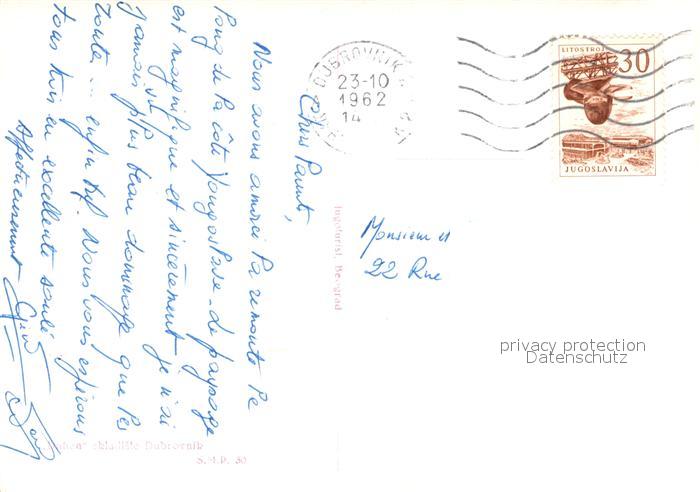 Chers Parents,
Nous avons amorcé la remonte le
long de la côte Yougoslave - le paysage
est magnifique et sincèrement je n'ai
jamais vu plus beau dommage que les
toute ... enfin bref. Nous vous espérons
tous trois en excellente santé
Affectueusement
DUBROVNIK
23-10
1962
14
LITOSTROJ
30
JUGOSLAVIJA
Jugoturist, Beograd
Monsieur et
22 Rue
privacy protection
Datenschutz
skladište Dubrovnik
S.M.P. 30